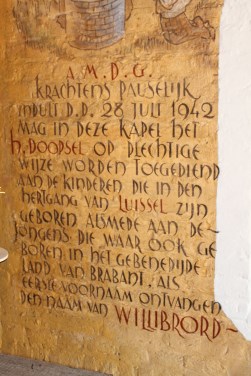 A.M.D.G.
KRACHTENS PAUSELIJK
INDULT D.D. 28 JULI 1942
MAG IN DEZE KAPEL HET
H. DOOPSEL OP PLECHTIGE
WIJZE WORDEN TOEGEDIEND
AAN DE KINDEREN DIE IN DEN
HERTGANG VAN LUISSEL ZIJN
GEBOREN ALSMEDE AAN DE-
JONGENS DIE WAAR OOK GE
BOREN IN HET GEBENEDIJDE
LAND VAN BRABANT, ALS
EERSTE VOORNAAM ONTVANGEN
DEN NAAM VAN WILLIBRORD